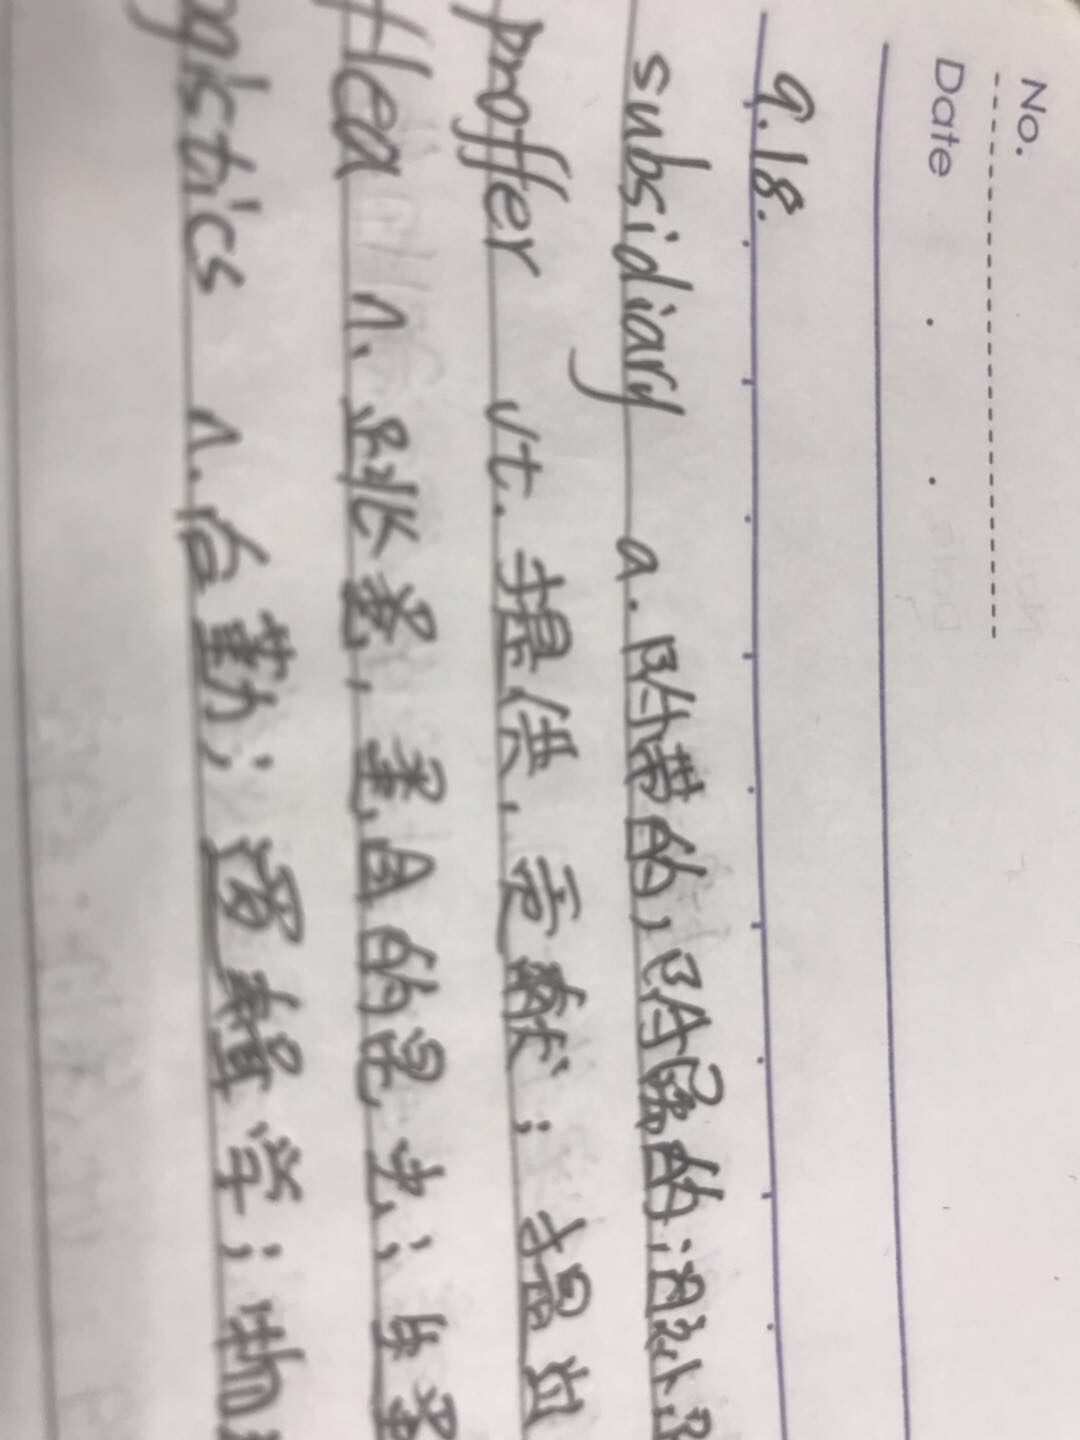 No.
Date
9.18.
subsidiary a. 附带的, 附属的; 次
proffer vt. 提供, 贡献; 提出
flea n. 跳蚤, 生
gistics n. 后勤; 逻辑学; 物